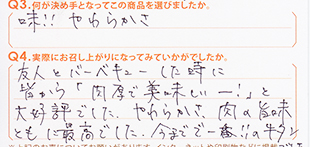 Q3.何が決め手となってこの商品を選びましたか。
味!! やわらかさ
Q4.実際にお召し上がりになってみていかがでしたか。
友人とバーベキューした時に
皆から「肉厚で美味しいー!」と
大好評でした。やわらかさ、肉の旨味
ともに最高でした。今までで一番!!の牛タン